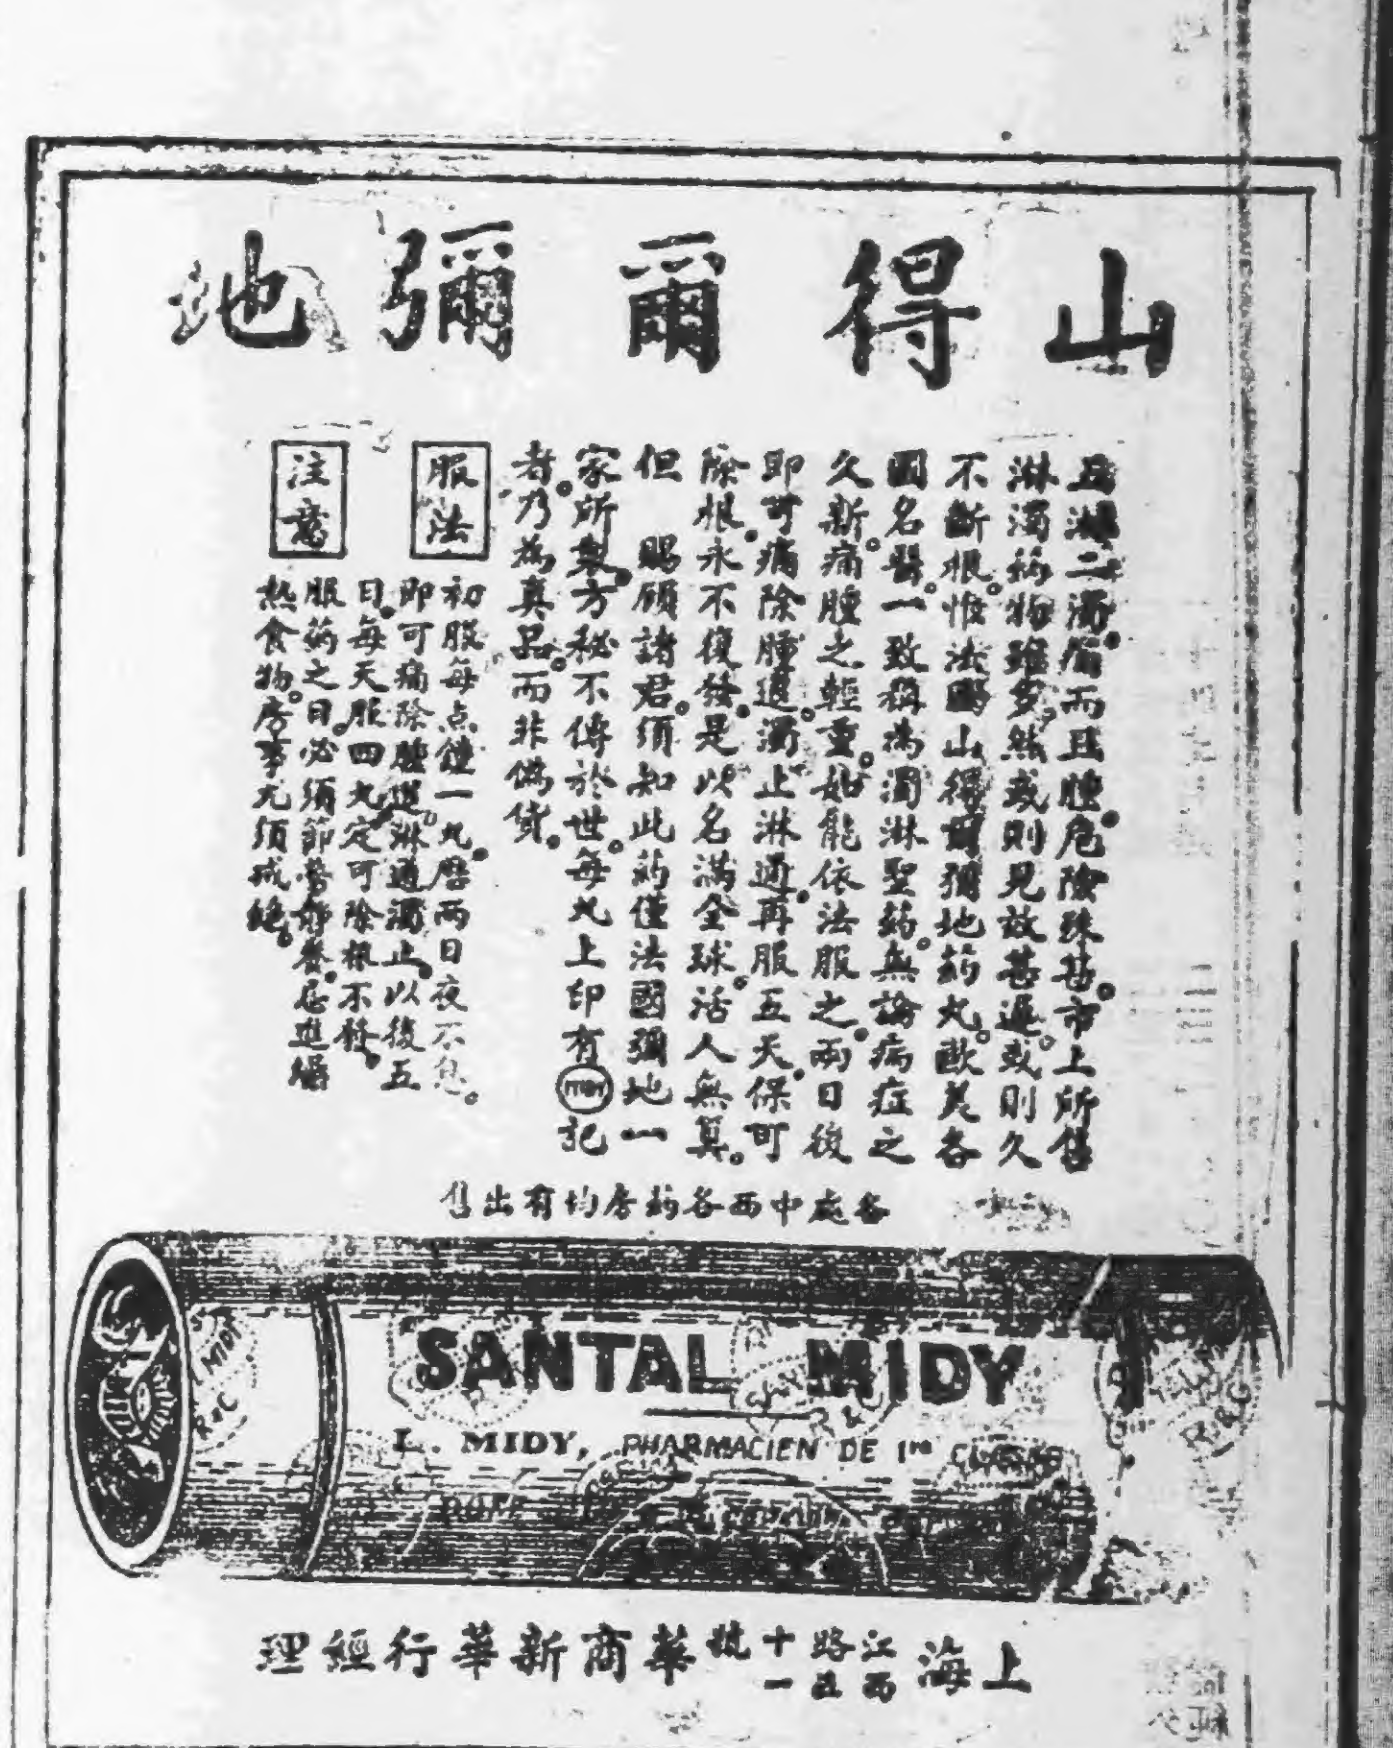 山得爾彌地
五淋二濁痛而且腫。危險殊甚。市上所售
淋濁葯物雖多。然或則見效甚遲。或則久
不斷根。惟法國山得爾彌地葯丸。歐美各
國名醫。一致稱為濁淋聖葯。無論病症之
久新。痛腫之輕重。如能依法服之。兩日後
即可痛除腫退。濁止淋通。再服五天。保可
除根。永不復發。是以名滿全球。活人無算。
但 賜顧諸君。須知此葯僅法國彌地一
家所製。方秘不傳於世。每丸上印有MIDY記
者。乃為真品。而非偽貨。
服法
初服每点鐘一丸。歷兩日夜不息。
即可痛除腫退。淋通濁止。以後五
日。每天服四丸。定可除根不發。
注意
服葯之日。必須節勞靜養。忌進
熱食物。房事尤須戒絕。
各處中西各葯房均有出售
SANTAL MIDY
L. MIDY, PHARMACIEN DE 1re CLASSE
上海江西路五十一號華商新華行經理